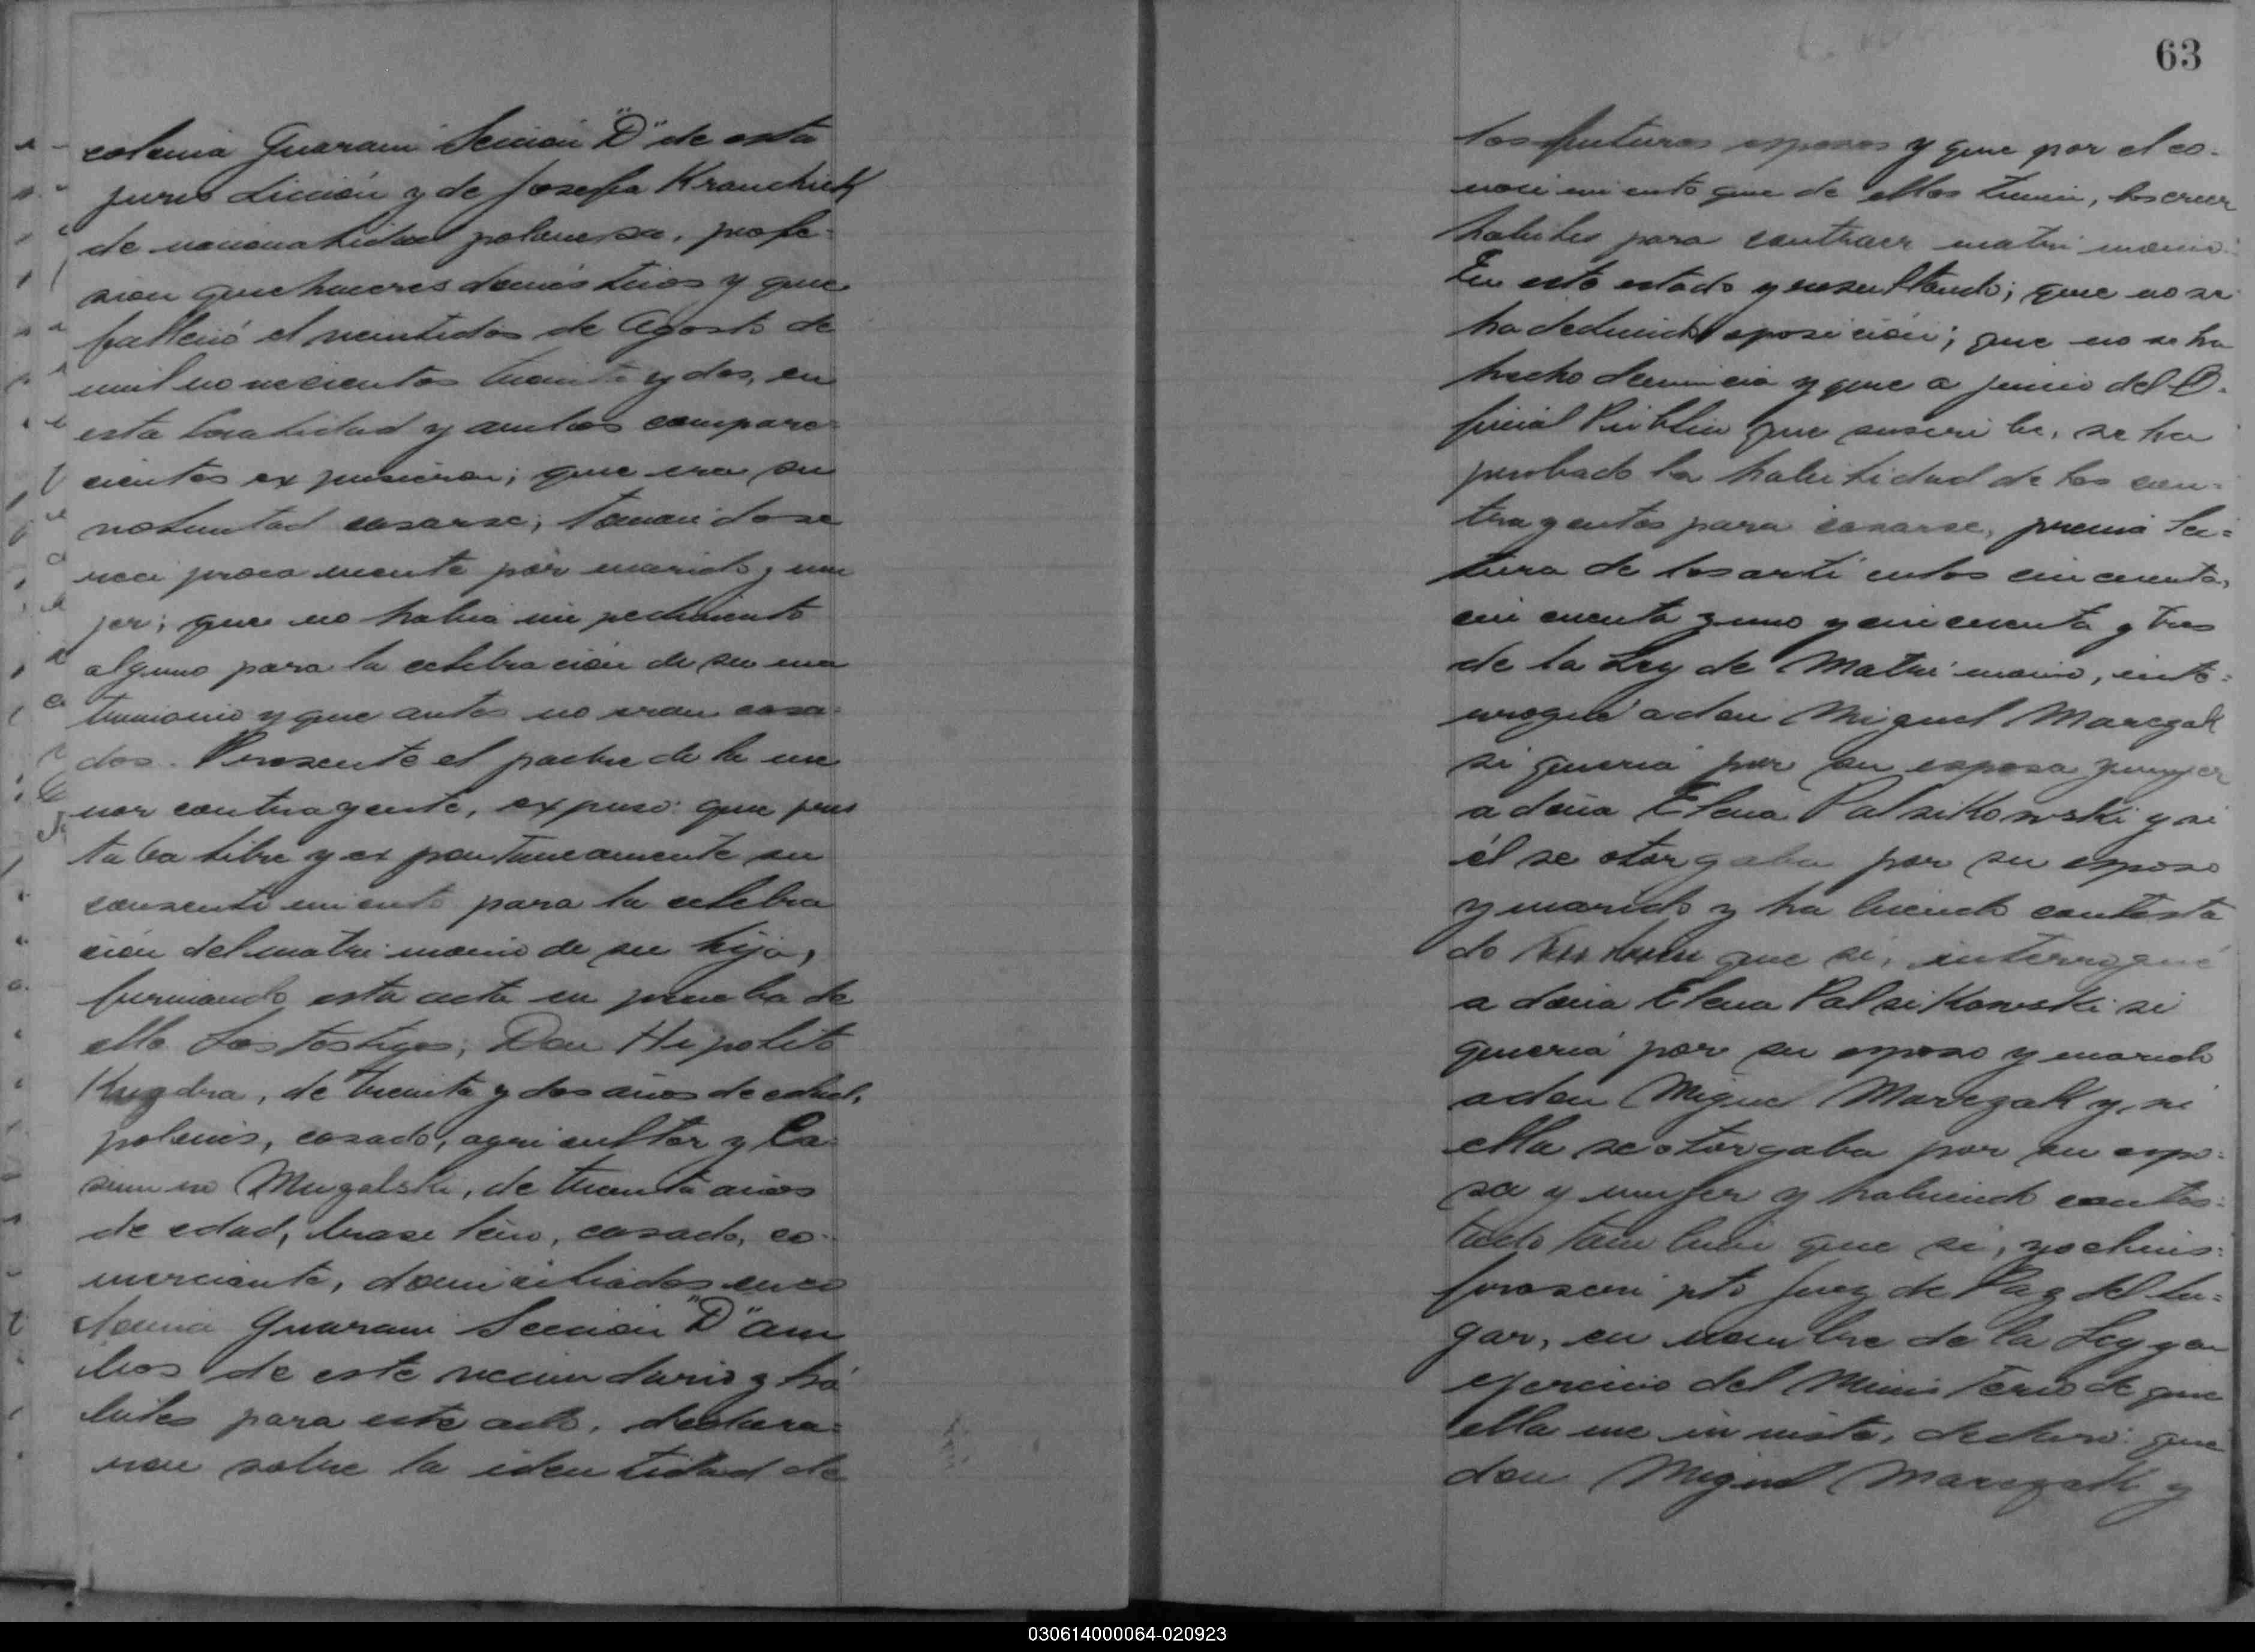 colonia Guarani Sección "D" de esta
jurisdicción y de Josefa Kranchuk
de nacionalidad polonesa, profe-
sion quehaceres domésticos y que
falleció el veintidos de Agosto de
mil novecientos treinta y dos, en
esta localidad y ambos compare-
cientes expusieron; que era su
voluntad casarse; tomandose
reciprocamente por marido y mu
jer; que no habia impedimento
alguno para la celebración de su ma
trimonio y que antes no eran casa-
dos. Presente el padre de la me
nor contrayente, expuso: que pres
taba libre y expontaneamente su
consentimiento para la celebra
ción del matrimonio de su hija,
firmando esta acta en prueba de
ello Los testigos; Don Hipolito
de treinta y dos años de edad,
polonés, casado, agricultor y Ca-
simiro Mugalski, de treinta años
de edad, brasilero, casado, co-
merciante, domiciliados en co
lonia Guarani Sección "D" am
bos de este vecindario y há
biles para este acto, declara-
ron sobre la identidad de
63
los futuros esposos y que por el co-
nocimiento que de ellos tienen, los creen
habiles para contraer matrimonio.
En este estado y resultando; que no se
ha deducido oposición; que no se ha
hecho denuncia y que a juicio del O-
ficial Público que suscribe, se ha
probado la habilidad de los con-
trayentes para casarse, previa lec-
tura de los artículos cincuenta,
cincuenta y uno y cincuenta y tres
de la Ley de Matrimonio, inte-
rrogué a don Miguel Marczak
si queria por su esposa y mujer
a doña Elena Palsikowski y si
él se otorgaba por su esposo
y marido y habiendo contesta
do que si, interrogué
a doña Elena Palsikowski si
queria por su esposo y marido
a don Miguel Marczak y si
ella se otorgaba por su espo-
sa y mujer y habiendo contes-
tado tambien que si, yo el in-
frascripto Juez de Paz del lu-
gar, en nombre de la Ley y en
ejercicio del Ministerio de que
ella me inviste, declaro: que
don Miguel Marczak y
030614000064-020923